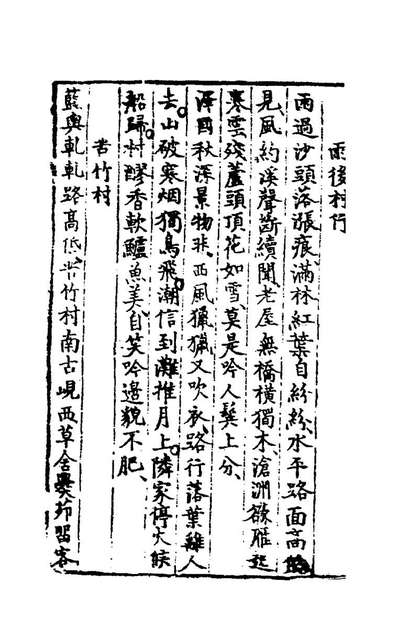 雨後村行
雨過沙頭落漲痕滿林紅葉自紛紛水平路面高
見風約溪聲斷續聞老屋無橋橫獨木滄洲欲雁起
寒雲殘蘆頭頂花如雪莫是吟人鬢上分
澤國秋深景物非西風獵獵又吹衣路行落葉離人
去山破寒烟獨鳥飛潮信到灘推月上隣家停火候
船歸村醪香軟鱸魚美自笑吟邊貌不肥
苦竹村
藍輿軋軋路高低苦竹村南古峴西草舍